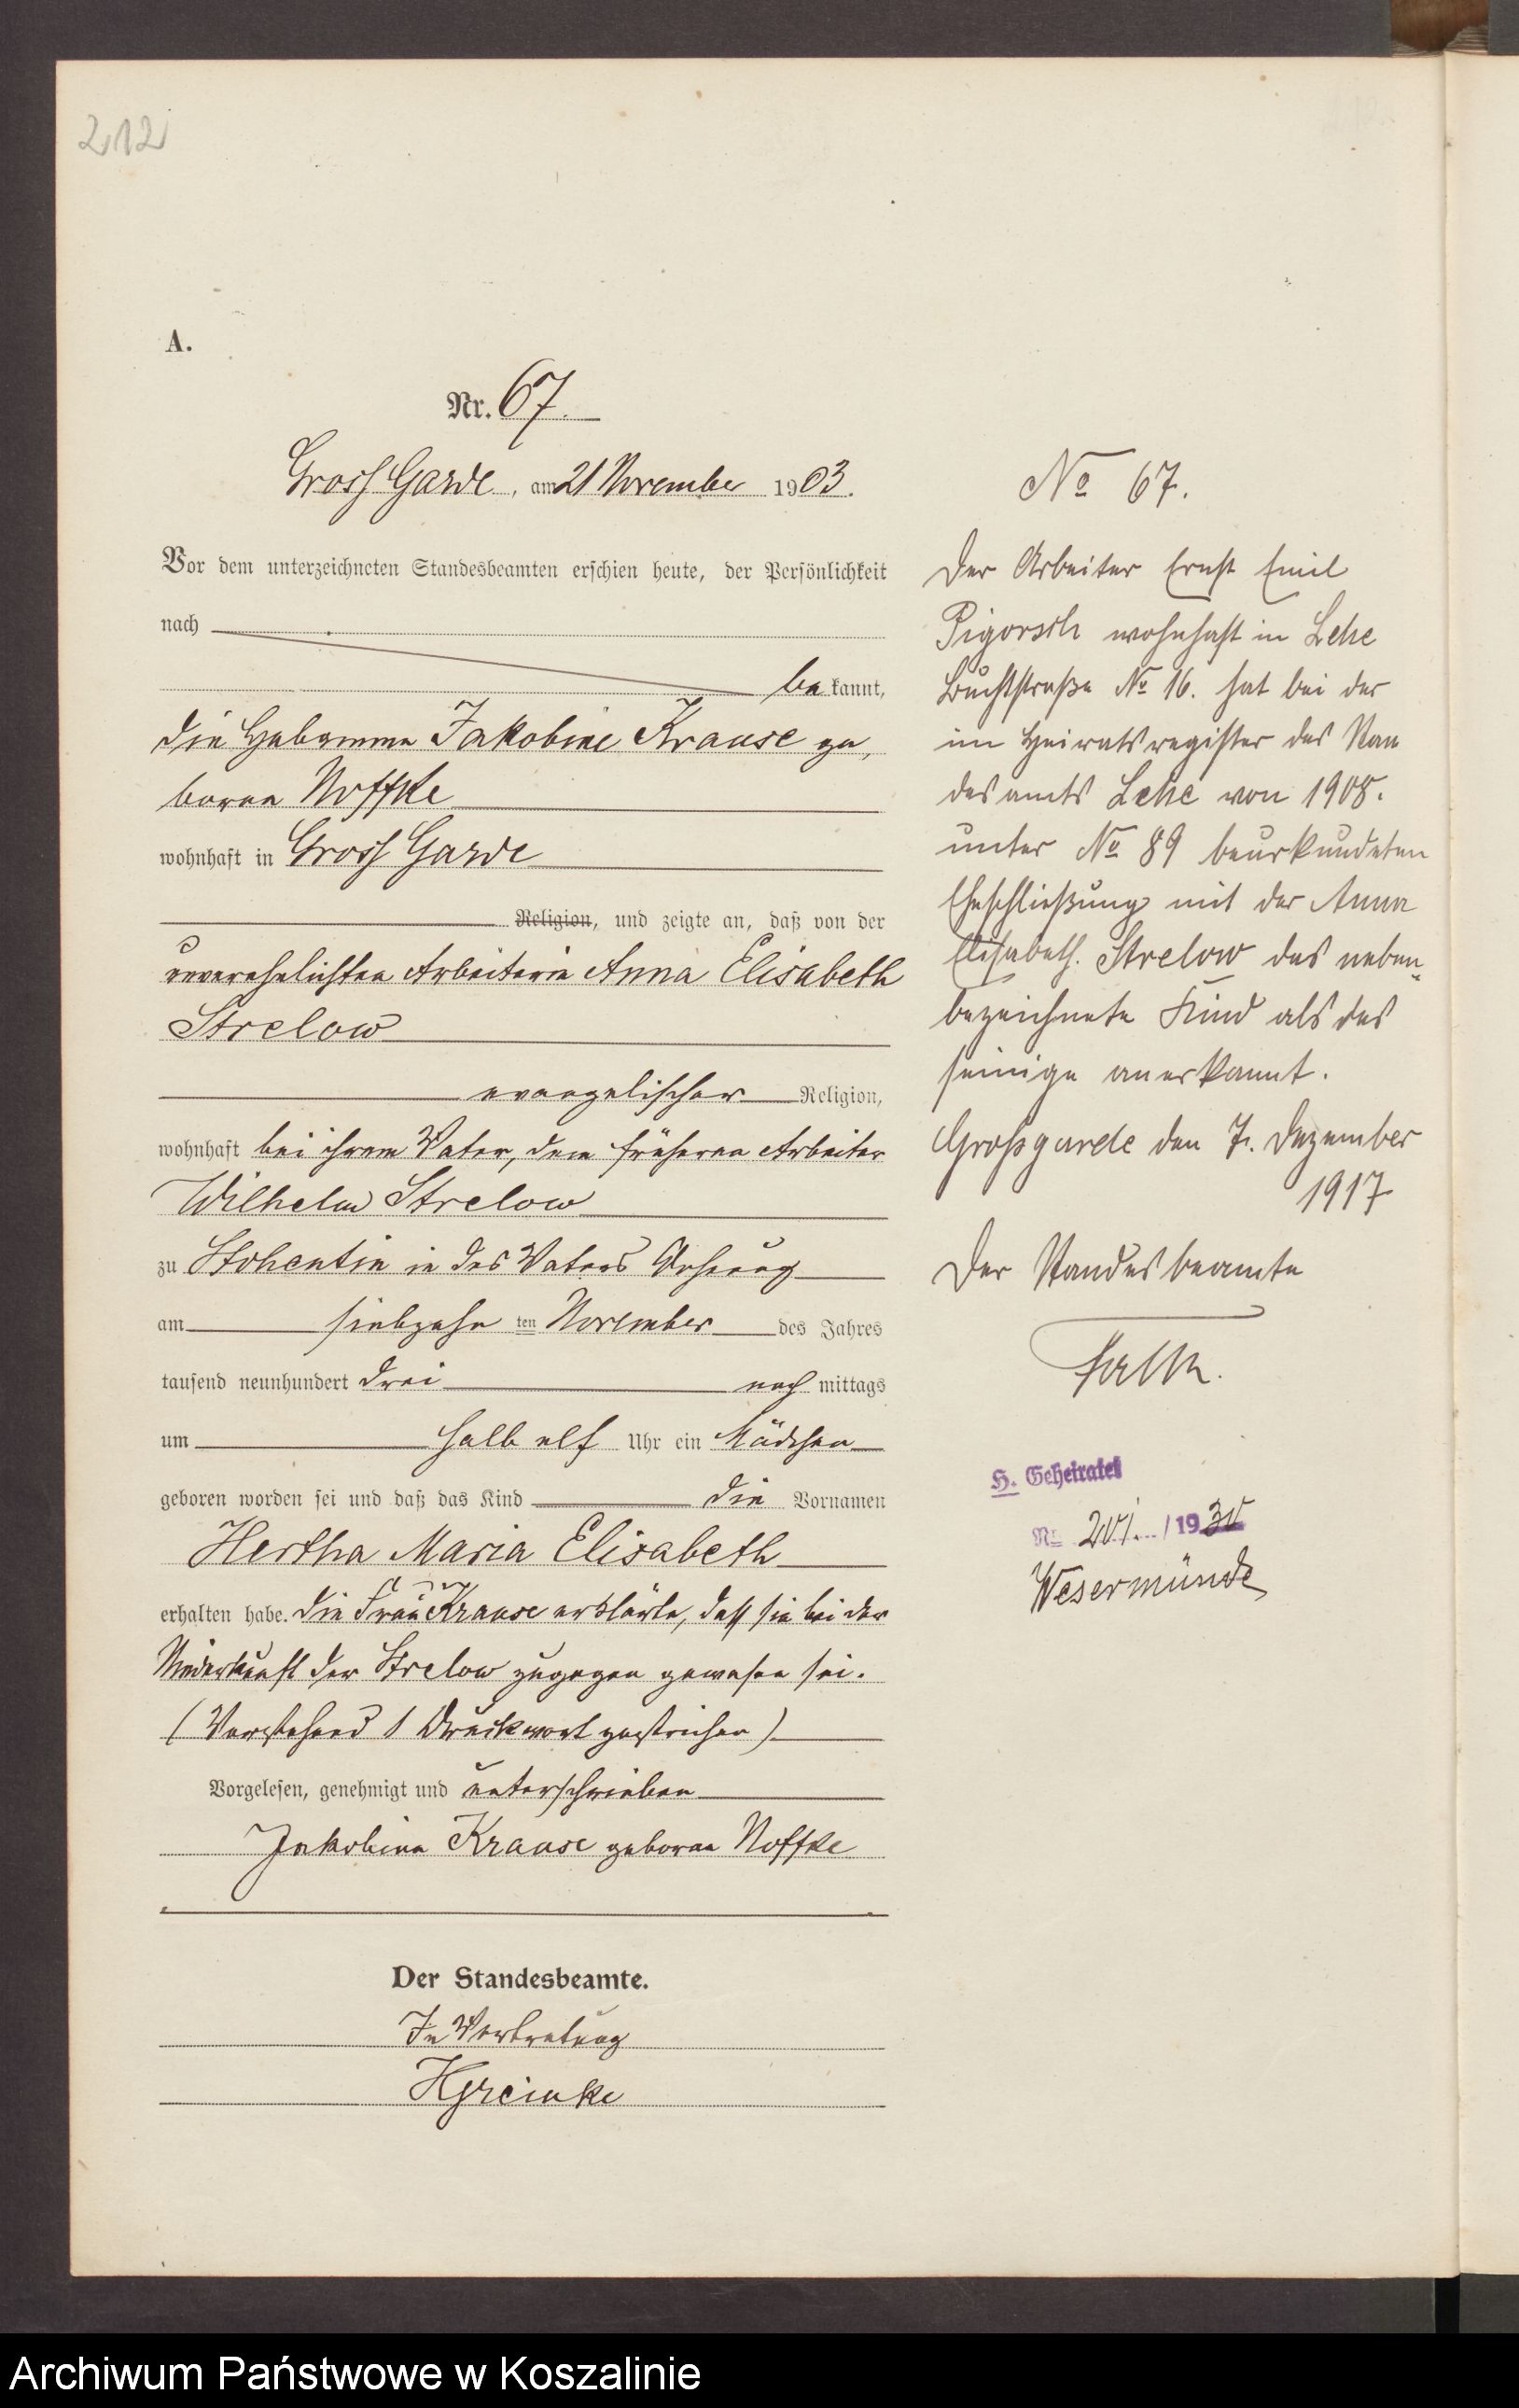 212
A.
Nr. 67.
Gross Garde, am 21 November 1903.
Vor dem unterzeichneten Standesbeamten erschien heute, der Persönlichkeit
nach
be kannt,
die Hebamme Jakobine Krause ge,
borne Noffke
wohnhaft in Gross Garde
Religion, und zeigte an, daß von der
unverehelichten Arbeiterin Anna Elisabeth
Strelow
evangelischer Religion,
wohnhaft bei ihrem Vater, dem früheren Arbeiter
Wilhelm Strelow
zu Stohentin in des Vaters Wohnung
am siebzehn ten November des Jahres
tausend neunhundert drei nach mittags
um halb elf Uhr ein Mädchen
geboren worden sei und daß das Kind die Vornamen
Hertha Maria Elisabeth
erhalten habe. Die Frau Krause erklärte, daß sie bei der
Niederkunft der Strelow zugegen gewesen sei.
(Vorstehend 1 Druckwort gestrichen)
Vorgelesen, genehmigt und unterschrieben
Jakobine Krause geborne Noffke
Der Standesbeamte.
In Vertretung
No 67.
Der Arbeiter Ernst Emil
Pigorsch wohnhaft in Lehe
Buchtstraße No 16. hat bei der
im Heiratsregister des Stan
desamts Lehe von 1908.
unter No 89 beurkundeten
Eheschließung mit der Anna
Elisabeth. Strelow das neben-
bezeichnete Kind als das
seinige anerkannt.
Großgarde den 7. Dezember
1917
Der Standesbeamte
H. Geheiratet
No 201. / 1930
Wesermünde
Archiwum Państwowe w Koszalinie